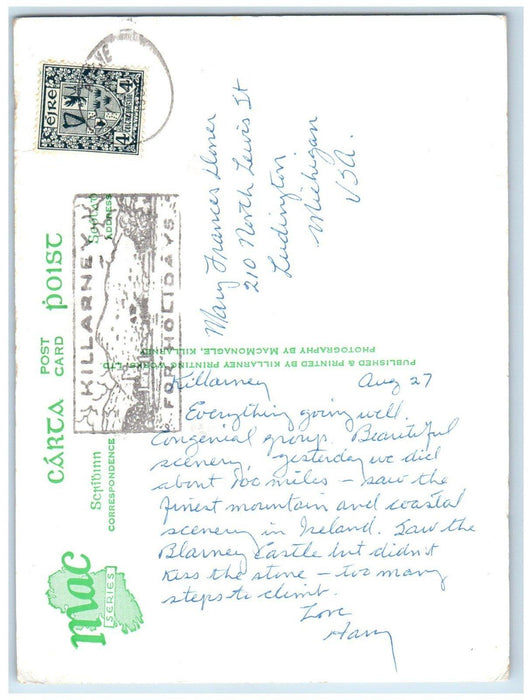 éire
4
4
KILLARNEY
FOR HOLIDAYS
CÁRTA POIST
POST CARD
Seoladh
ADDRESS
Scríbinn
CORRESPONDENCE
mac
SERIES
PUBLISHED & PRINTED BY KILLARNEY PRINTING WORKS LTD.
PHOTOGRAPHY BY MACMONAGLE, KILLARNEY
Mary Frances
210 North Lewis St
Ludington
Michigan
USA.
Killarney Aug 27
Everything going well.
Congenial group. Beautiful
scenery, yesterday we did
about 100 miles – saw the
finest mountain and coastal
scenery in Ireland. Saw the
Blarney Castle but didn't
kiss the stone – too many
steps to climb.
Love
Harry